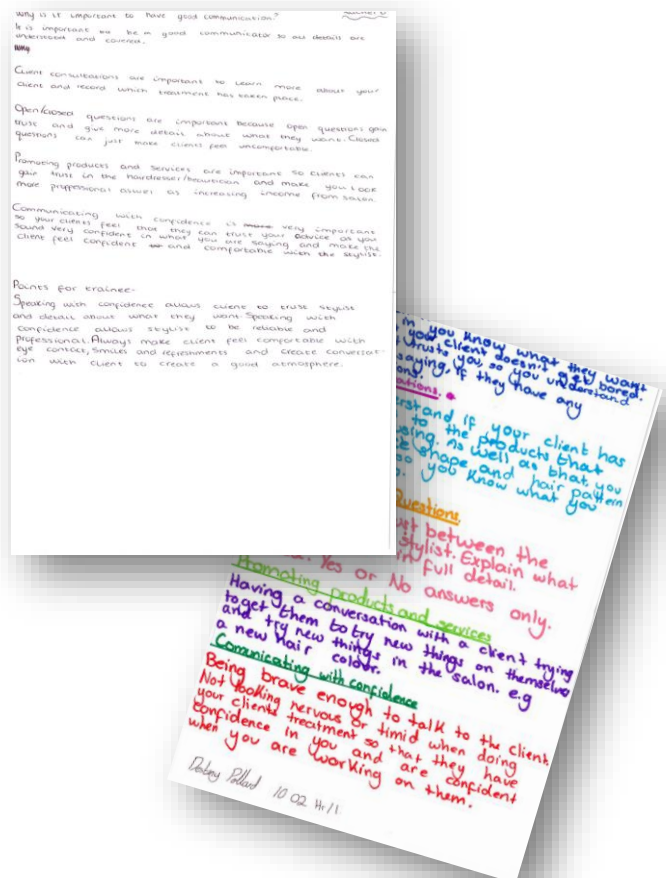 Why is it important to have good communication?
It is important to be a good communicator so all details are
understood and covered.
Client consultations are important to learn more about your
client and record which treatment has taken place.
Open/closed questions are important because open questions gain
trust and give more detail about what they want. Closed
questions can just make clients feel uncomfortable.
Promoting products and services are important so clients can
gain trust in the hairdresser/beautician and make you look
more proffessional aswell as increasing income from salon.
Communicating with confidence is very important
so your clients feel that they can trust your advice as you
sound very confident in what you are saying and make the
client feel confident and comfortable with the stylist.
Points for trainee-
Speaking with confidence allows client to trust stylist
and detail about what they want. Speaking with
confidence allows stylist to be reliable and
professional. Always make client feel comfortable with
eye contact, smiles and refreshments and create conversat-
ion with client to create a good atmosphere.
you know what they want
your client doesn't get bored.
trusts you, so you understand
saying, if they have any
ations.
erstand if your client has
to the products that
using. As well as that you
shape and hair pattern
so you know what you
Questions
between the
stylist. Explain what
in full detail.
Yes or No answers only.
Promoting products and services
Having a conversation with a client trying
to get them to try new things on themselves
and try new things in the salon. e.g
a new hair colour.
Communicating with confidence
Being brave enough to talk to the client.
Not looking nervous or timid when doing
your clients treatment so that they have
confidence in you and are confident
when you are working on them.
Pollard 10 02 Hr/1